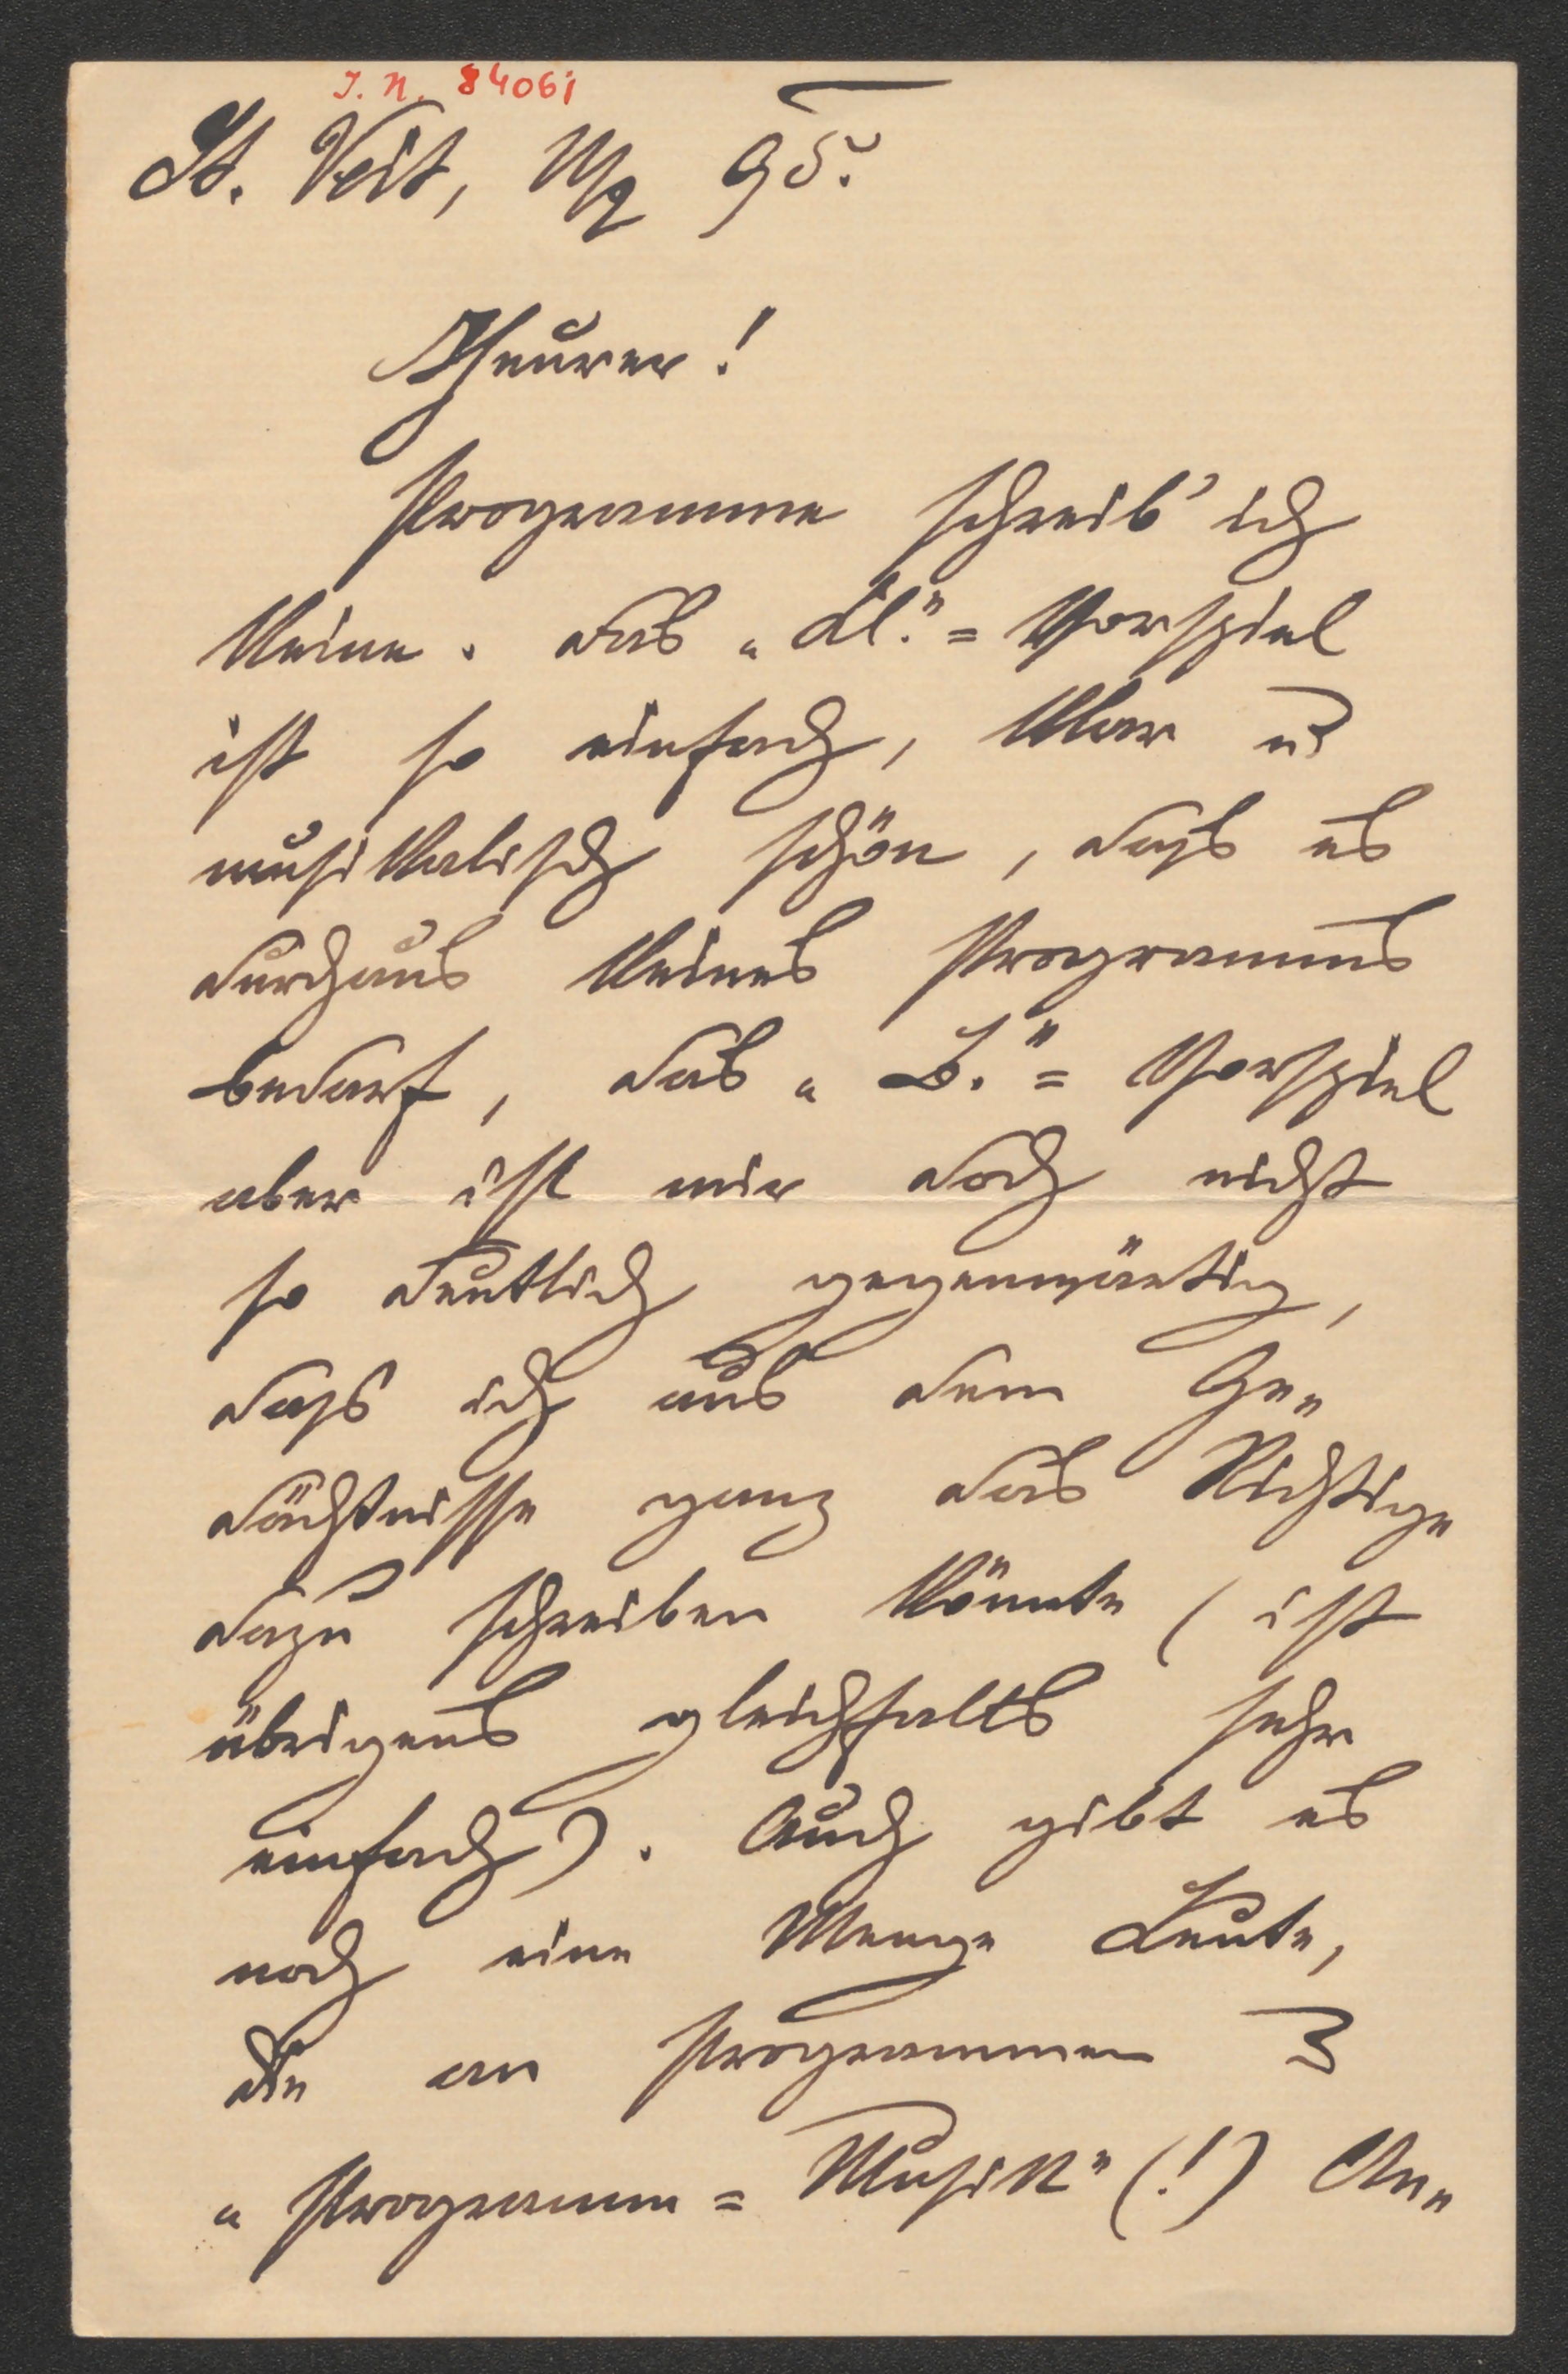 I. N. 84061
St. Veit, 11/2 95.
Theurer!
Programme schreib' ich
keine. Das „Al."=Vorspiel
ist so einfach, klar u
musikalisch schön, dass es
durchaus keines Programms
bedarf, das „L."=Vorspiel
aber ist mir doch nicht
so deutlich gegenwärtig,
dass ich aus dem Ge„
dächtnisse ganz das Richtige
dazu schreiben könnte (ist
übrigens gleichfalls sehr
einfach). Auch gibt es
noch eine Menge Leute,
die an Programmen &
„Programm=Musik" (!) An„